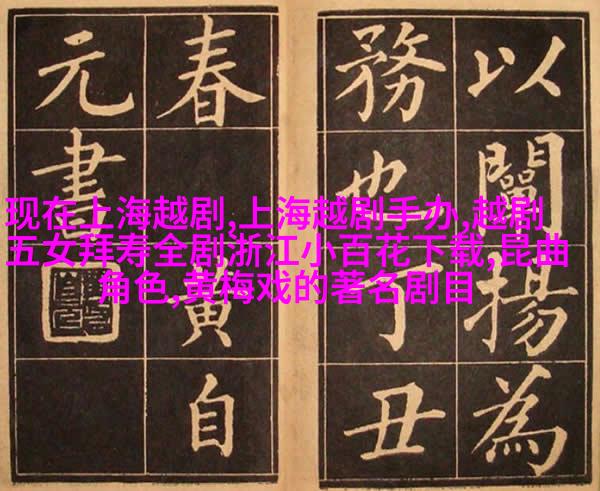 以闡揚為
務也丁丑
春黄自
元書
现在上海越剧,上海越剧手办,越剧
五女拜寿全剧浙江小百花下载,昆曲
角色,黄梅戏的著名剧目